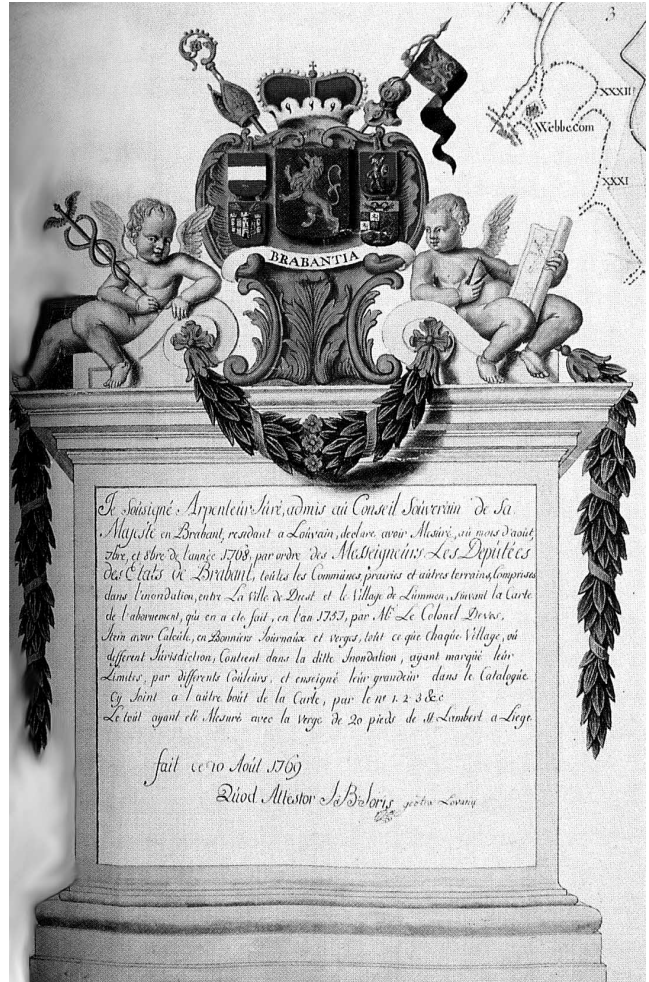 3
XXXII
Webbe.com
XXXI
BRABANTIA
Je Soüsigné Arpenteur Jüré, admis aü Conseil Soüverain de Sa
Majesté en Brabant, residant a Loüvain, declare avoir Mesüré, aü mois d'aoüt,
7bre, et 8bre de l'année 1768, par ordre des Messeigneürs Les Depütées
des Etats de Brabant, toütes les Commünes, prairies et aütres terrains, Comprises
dans l'inondation, entre La Ville de Diest et le Village de Lümmen, süivant la Carte
de l'abornement, qüi en a ete fait, en l'an 1753, par Mr Le Colonel Devos,
Item avoir Calcüle, en Bonniers Joürnaüx et verges, toüt ce qüe chaqüe Village, oü
different Jürisdiction, Contient dans la ditte Inondation, ayant marqüé leür
Limites, par differents Coüleürs, et enseigné leür grandeür dans le Catalogüe
Cy Joint a l'aütre boüt de la Carte, par le no 1. 2. 3 &c
Le toüt ayant eté Mesüré avec la Verge de 20 pieds de St Lambert a Liege
fait ce 10 Aoüt 1769
Qüod Attestor J:B:Joris geötra Lovany